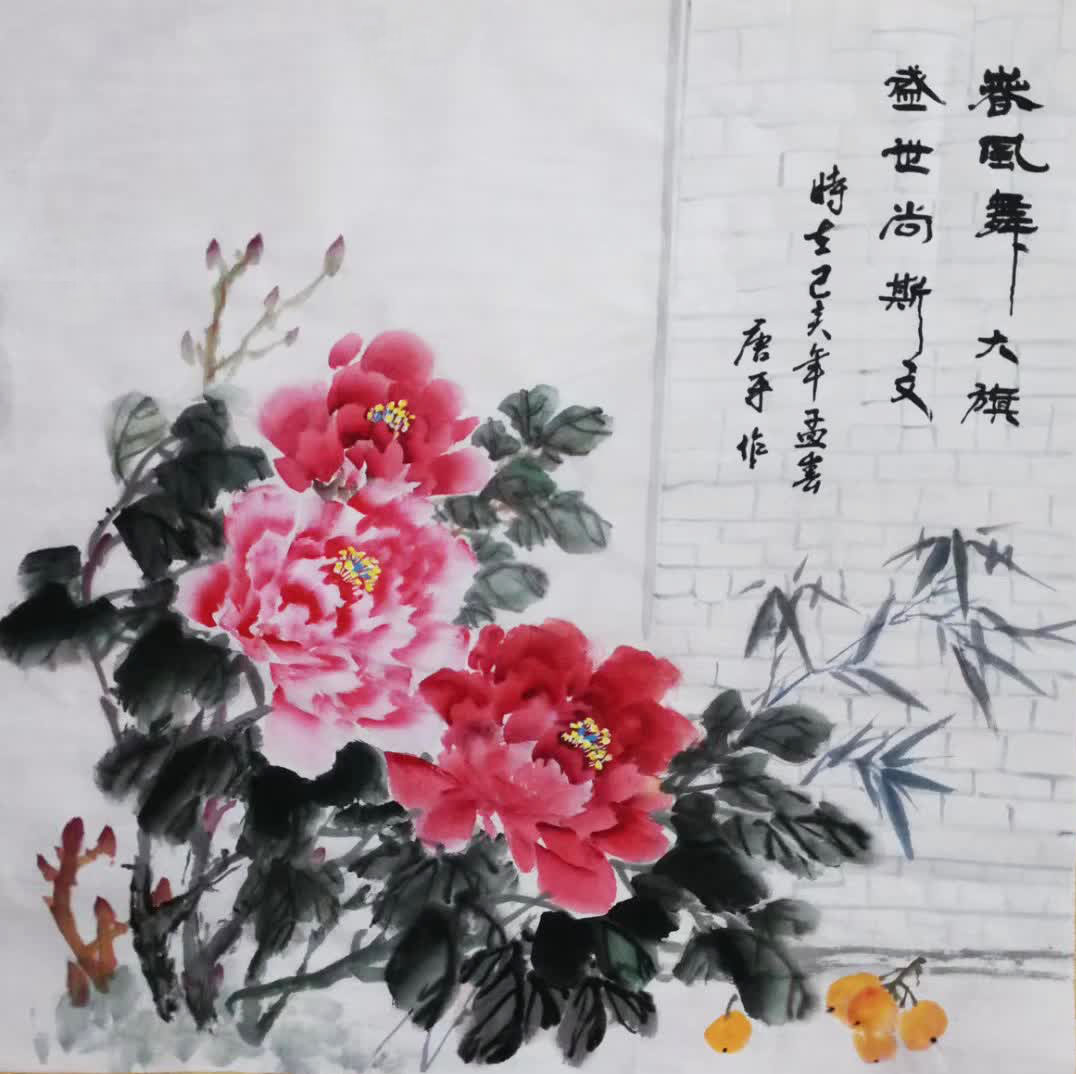 春風舞大旗
盛世尚斯文
時在己亥年孟春
唐平作